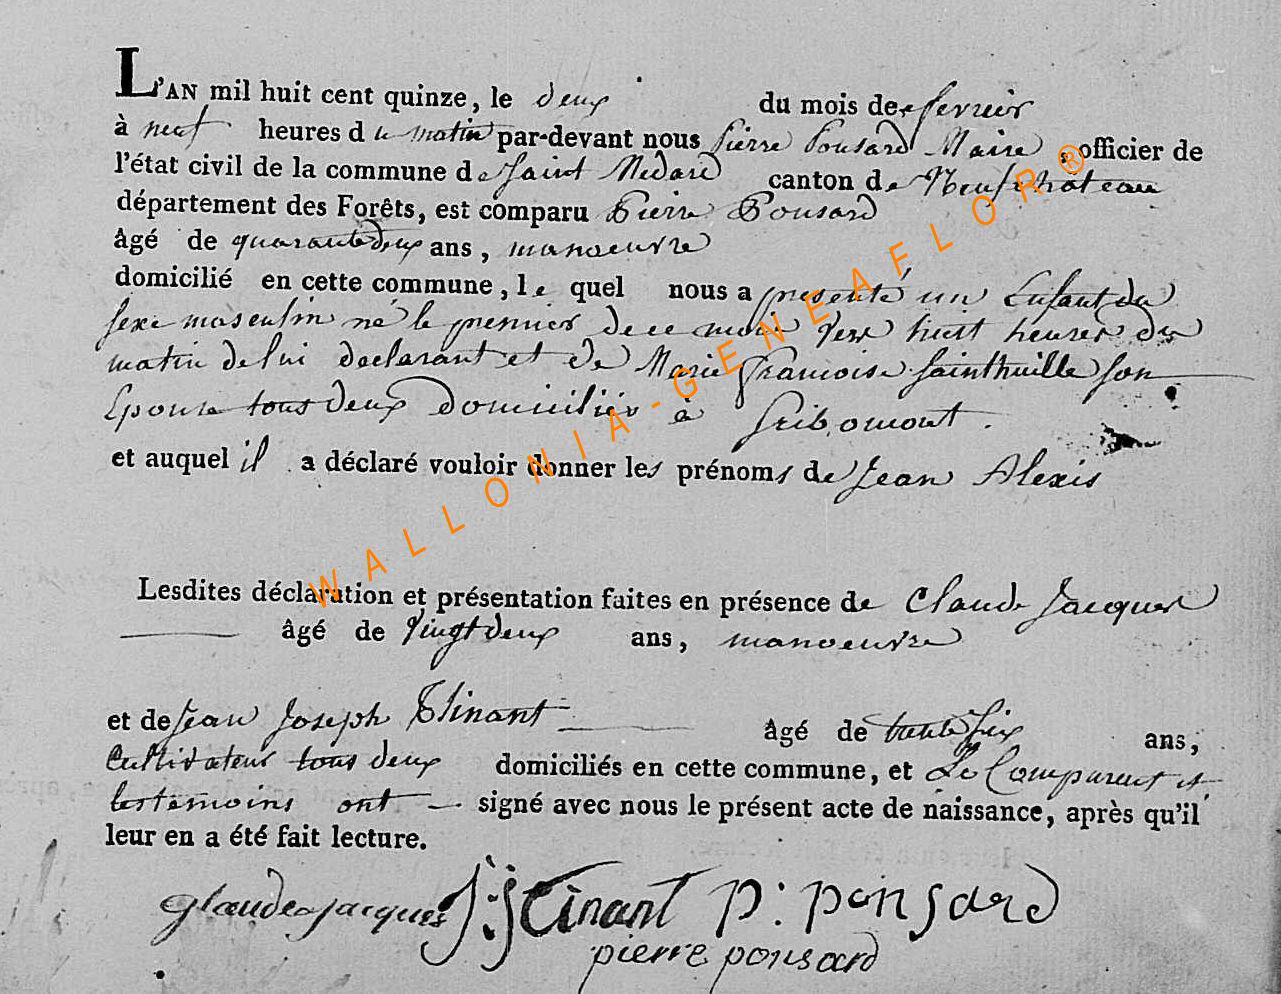 L'AN mil huit cent quinze, le deux du mois de fevrier
à neuf heures du matin par-devant nous Pierre Ponsard Maire, officier de
l'état civil de la commune de Saint Medard canton de Neufchateau
département des Forêts, est comparu Pierre Ponsard
âgé de quarante deux ans, manoeuvre
domicilié en cette commune, le quel nous a présenté un Enfant du
sexe masculin né le premier de ce mois vers huit heures du
matin de lui declarant et de Marie françoise Sainthuille son
Epouse tous deux Domiciliés à Gribomont.
et auquel il a déclaré vouloir donner les prénoms de Jean Alexis
Lesdites déclaration et présentation faites en présence de Claude Jacques
âgé de vingt deux ans, manoeuvre
et de Jean Joseph Thinant âgé de trente six ans,
Cultivateur tous deux domiciliés en cette commune, et Le Comparent et
les temoins ont signé avec nous le présent acte de naissance, après qu'il
leur en a été fait lecture.
glaude jacques J: J tinant p: ponsard
pierre ponsard
WALLONIA-GENEAFLOR®